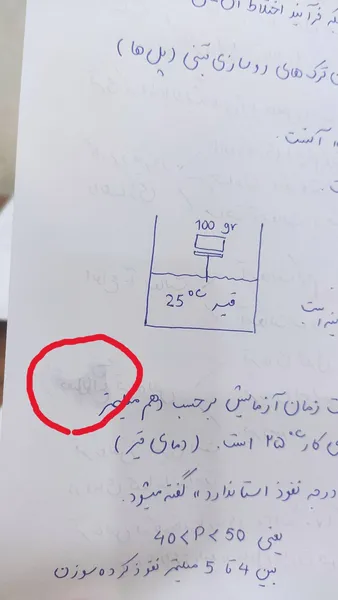 فرآیند اختلاط
ترک های روسازی بتنی (پل ها)
آنست.
100 gr
قیر 25°C
ت زمان آزمایش برحسب دهم میلیمتر
کار 25°C است. (دمای قیر)
درجه نفوذ استاندارد» گفته میشود.
یعنی 40<P<50
بین 4 تا 5 میلیمتر نفوذ کرده سوزن